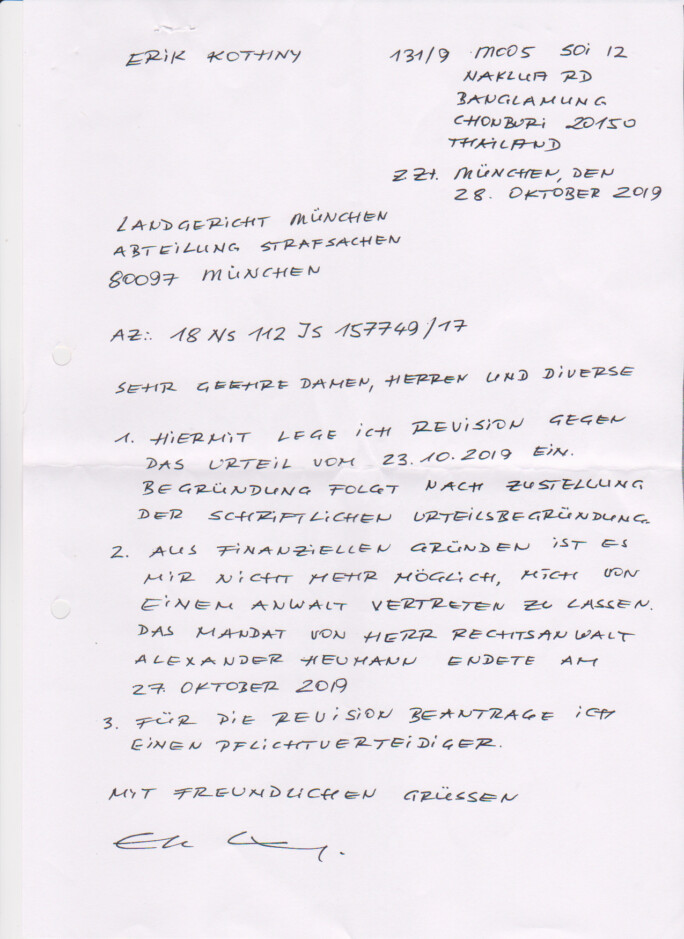 ERIK KOTHNY
131/9 MOO5 SOI 12
NAKLUA RD
BANGLAMUNG
CHONBURI 20150
THAILAND
ZZT. MÜNCHEN, DEN
28. OKTOBER 2019
LANDGERICHT MÜNCHEN
ABTEILUNG STRAFSACHEN
80097 MÜNCHEN
AZ.: 18 Ns 112 JS 157749/17
SEHR GEEHRE DAMEN, HERREN UND DIVERSE
1. HIERMIT LEGE ICH REVISION GEGEN
DAS URTEIL VOM 23.10.2019 EIN.
BEGRÜNDUNG FOLGT NACH ZUSTELLUNG
DER SCHRIFTLICHEN URTEILSBEGRÜNDUNG.
2. AUS FINANZIELLEN GRÜNDEN IST ES
MIR NICHT MEHR MÖGLICH, MICH VON
EINEM ANWALT VERTRETEN ZU LASSEN.
DAS MANDAT VON HERR RECHTSANWALT
ALEXANDER HEUMANN ENDETE AM
27. OKTOBER 2019
3. FÜR DIE REVISION BEANTRAGE ICH
EINEN PFLICHTVERTEIDIGER.
MIT FREUNDLICHEN GRÜSSEN